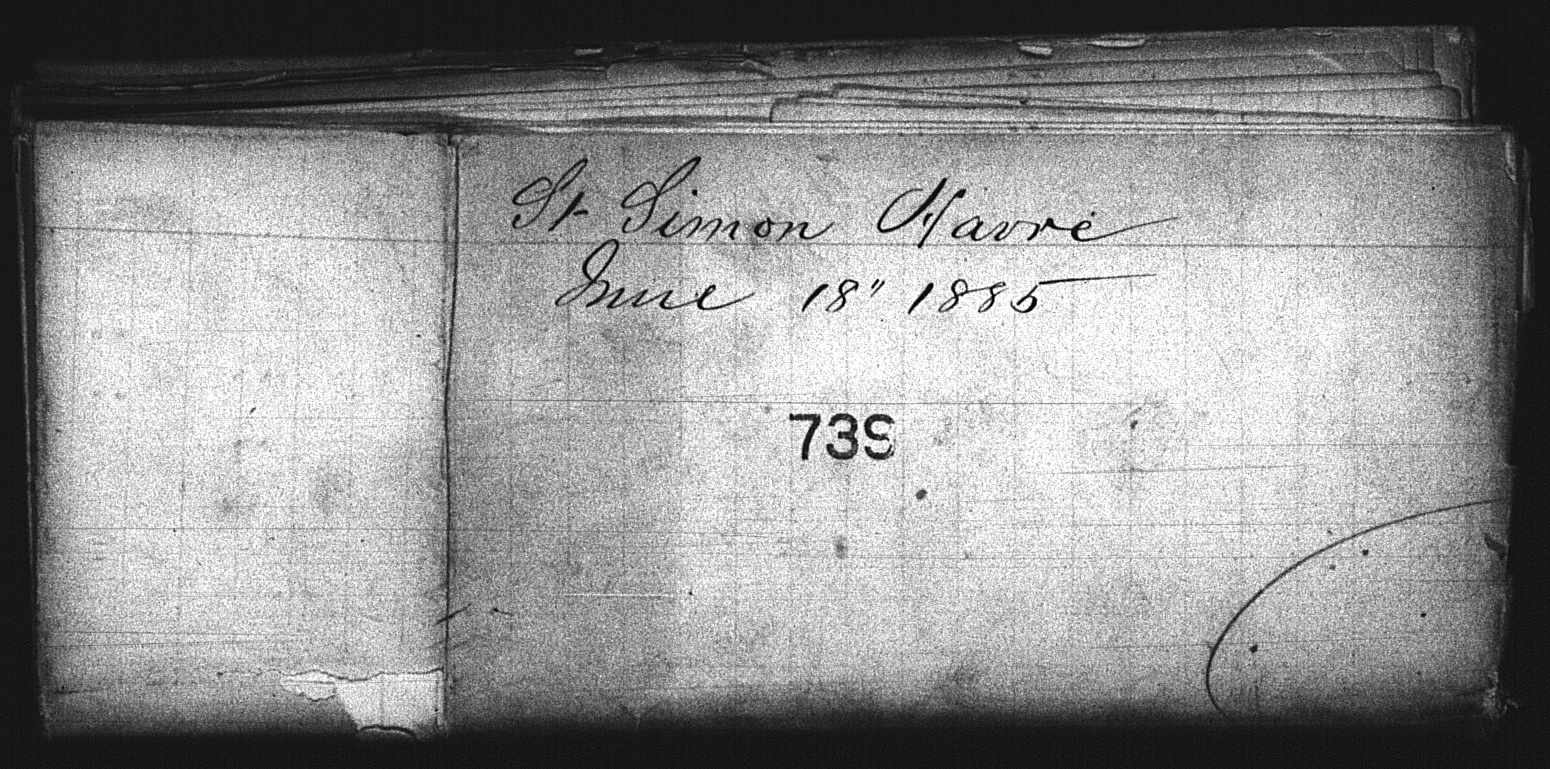 St Simon Havre
June 18" 1885
739